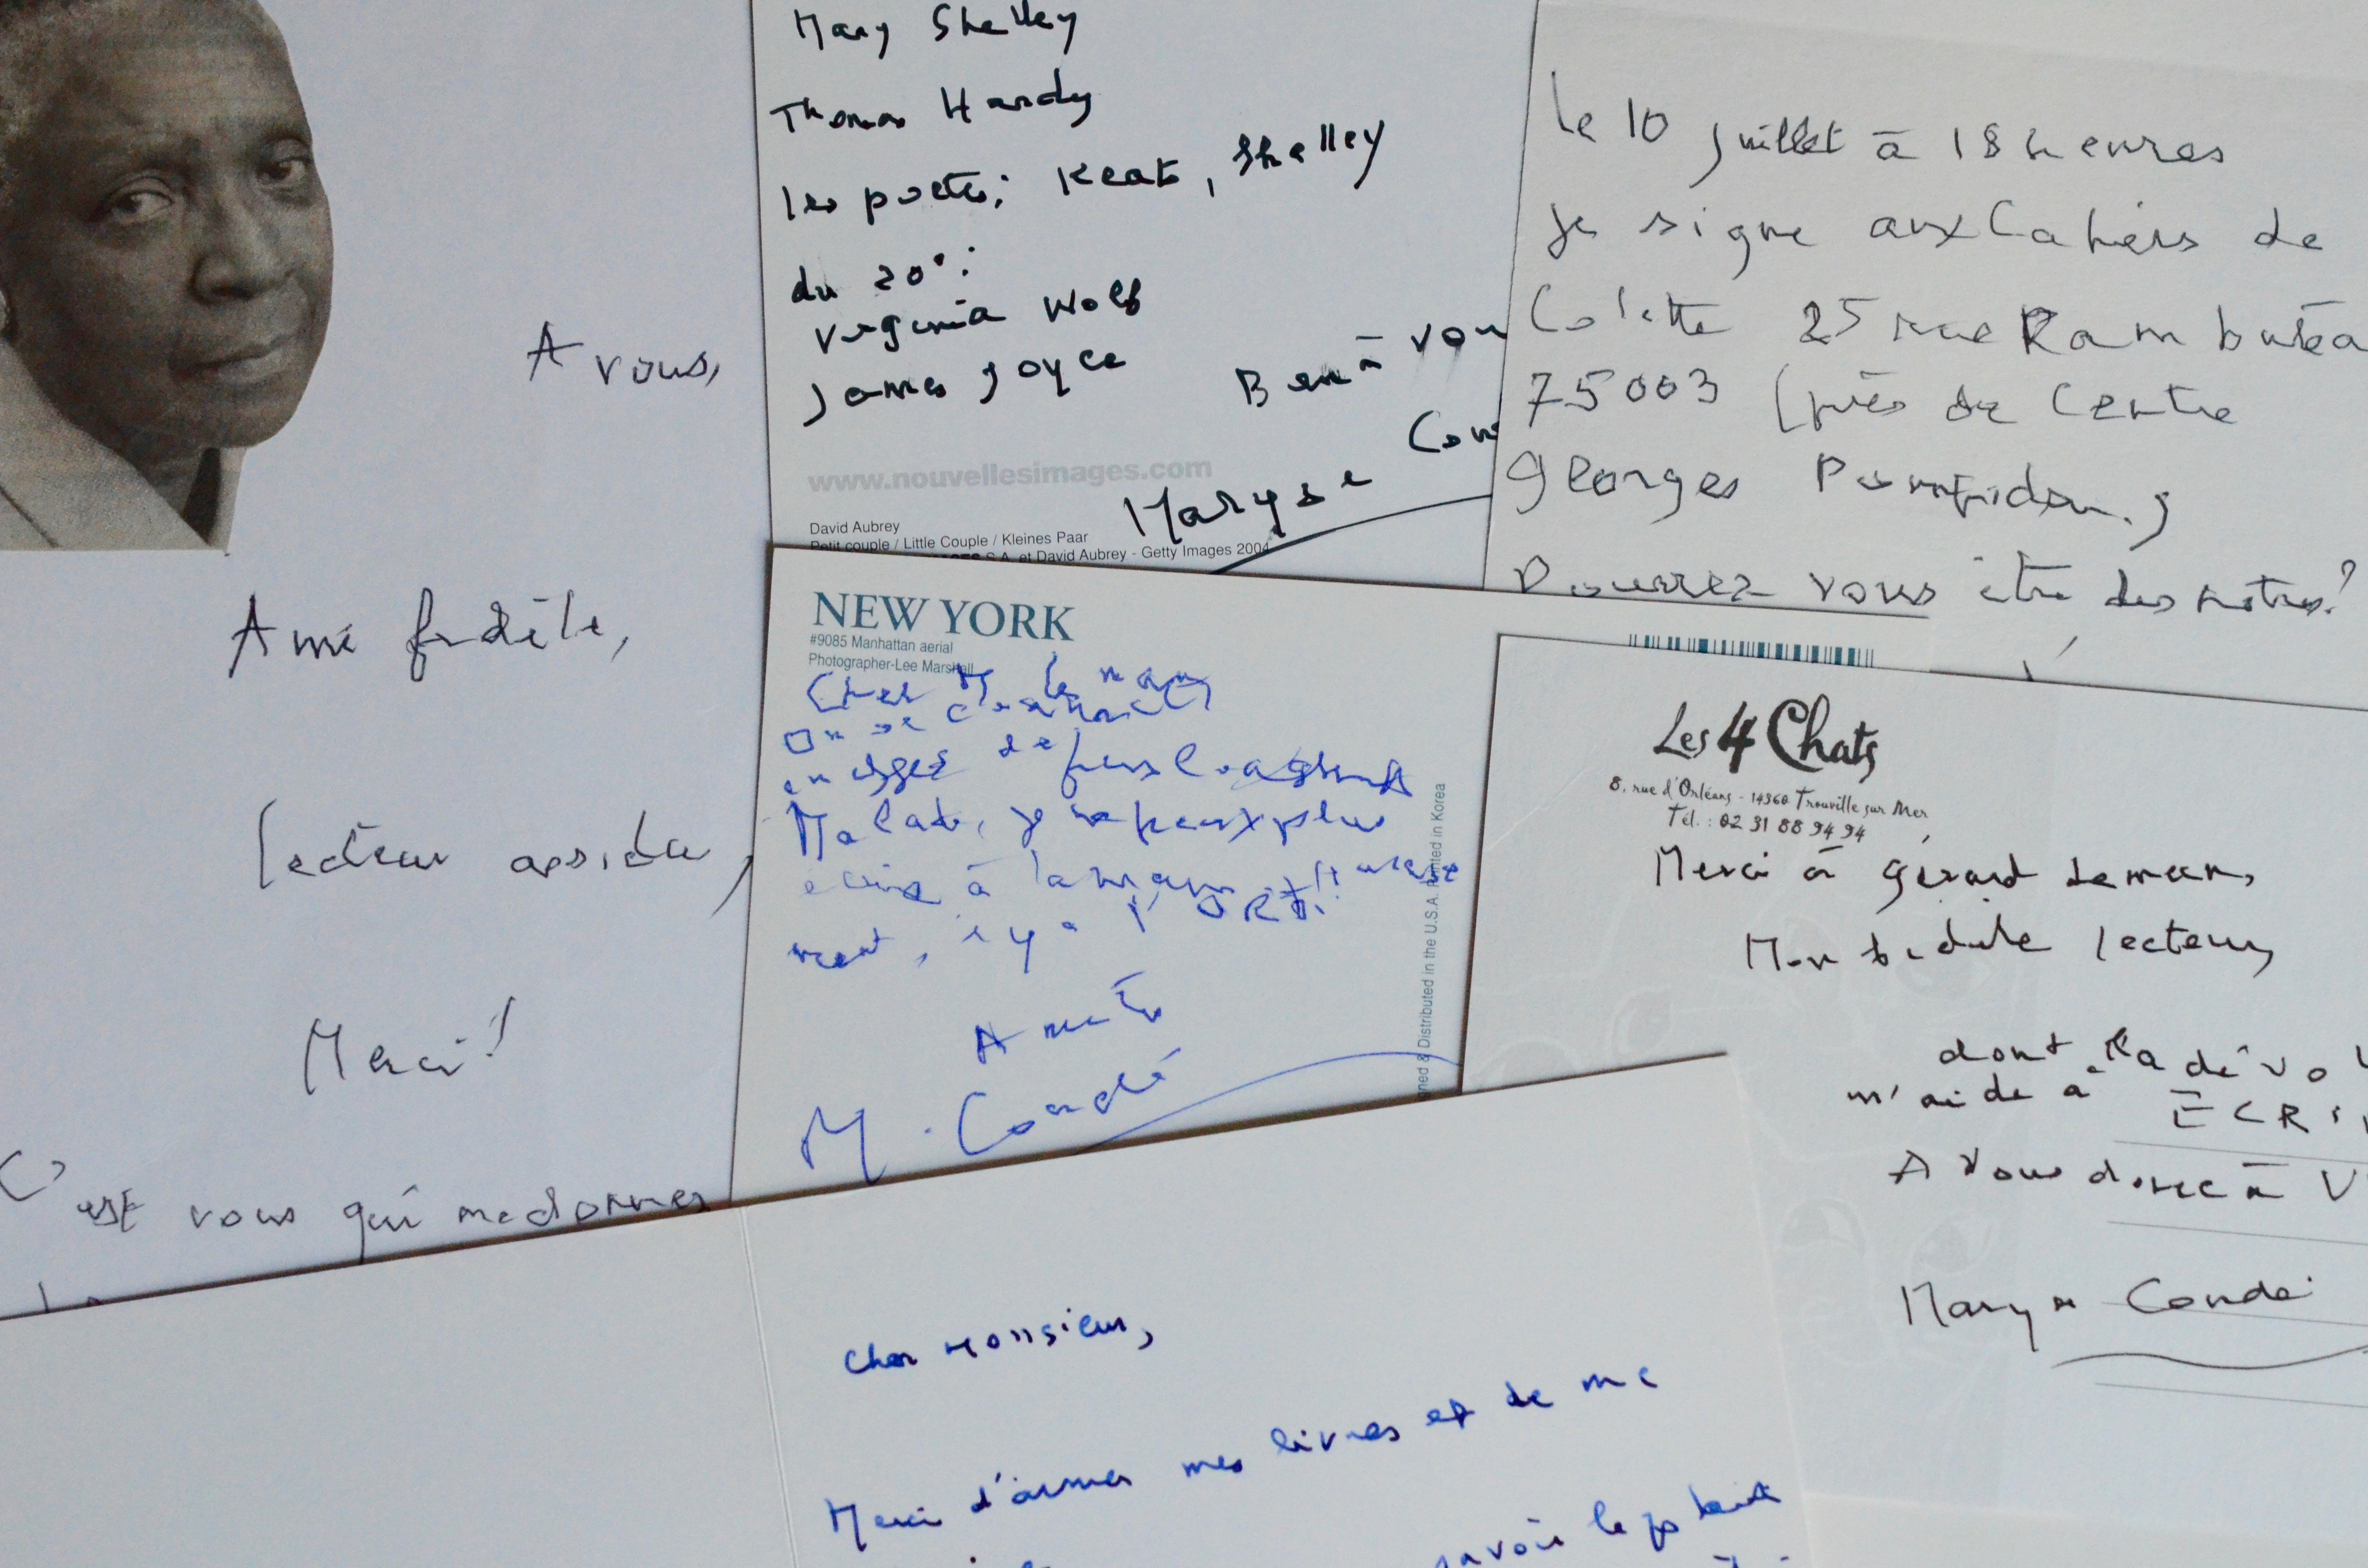 A vous,
Ami fidèle,
lecteur assidu,
Merci!
C'est vous qui me donnez
Mary Shelley
Thomas Hardy
les poètes: Keats, Shelley
du 20°:
Virginia Wolf
James Joyce
Bien à vou
www.nouvellesimages.com
Maryse
David Aubrey
Petit couple / Little Couple / Kleines Paar
S.A. et David Aubrey - Getty Images 2004
Le 10 juillet à 18 heures
Je signe aux Cahiers de
Colette 25 rue Rambutea
75003 (près de Centre
Georges Pompidou.)
Pourrez vous être des nôtres?
NEW YORK
#9085 Manhattan aerial
Photographer-Lee Marshall
Cher M.
On se connait
Malade, je ne peux plus
à la main
ment, il y a
Amitiés
M. Condé
gned & Distributed in the U.S.A. Printed in Korea
Les 4 Chats
8, rue d'Orléans - 14360 Trouville sur Mer
Tél.: 02 31 88 94 94
Merci à Gérard
Mon fidèle lecteur,
dont la dévo
m'aide à ECRI
A vous donc à V
Maryse Condé
Cher Monsieur,
Merci d'aimer mes livres et de me
savoir le plaisir